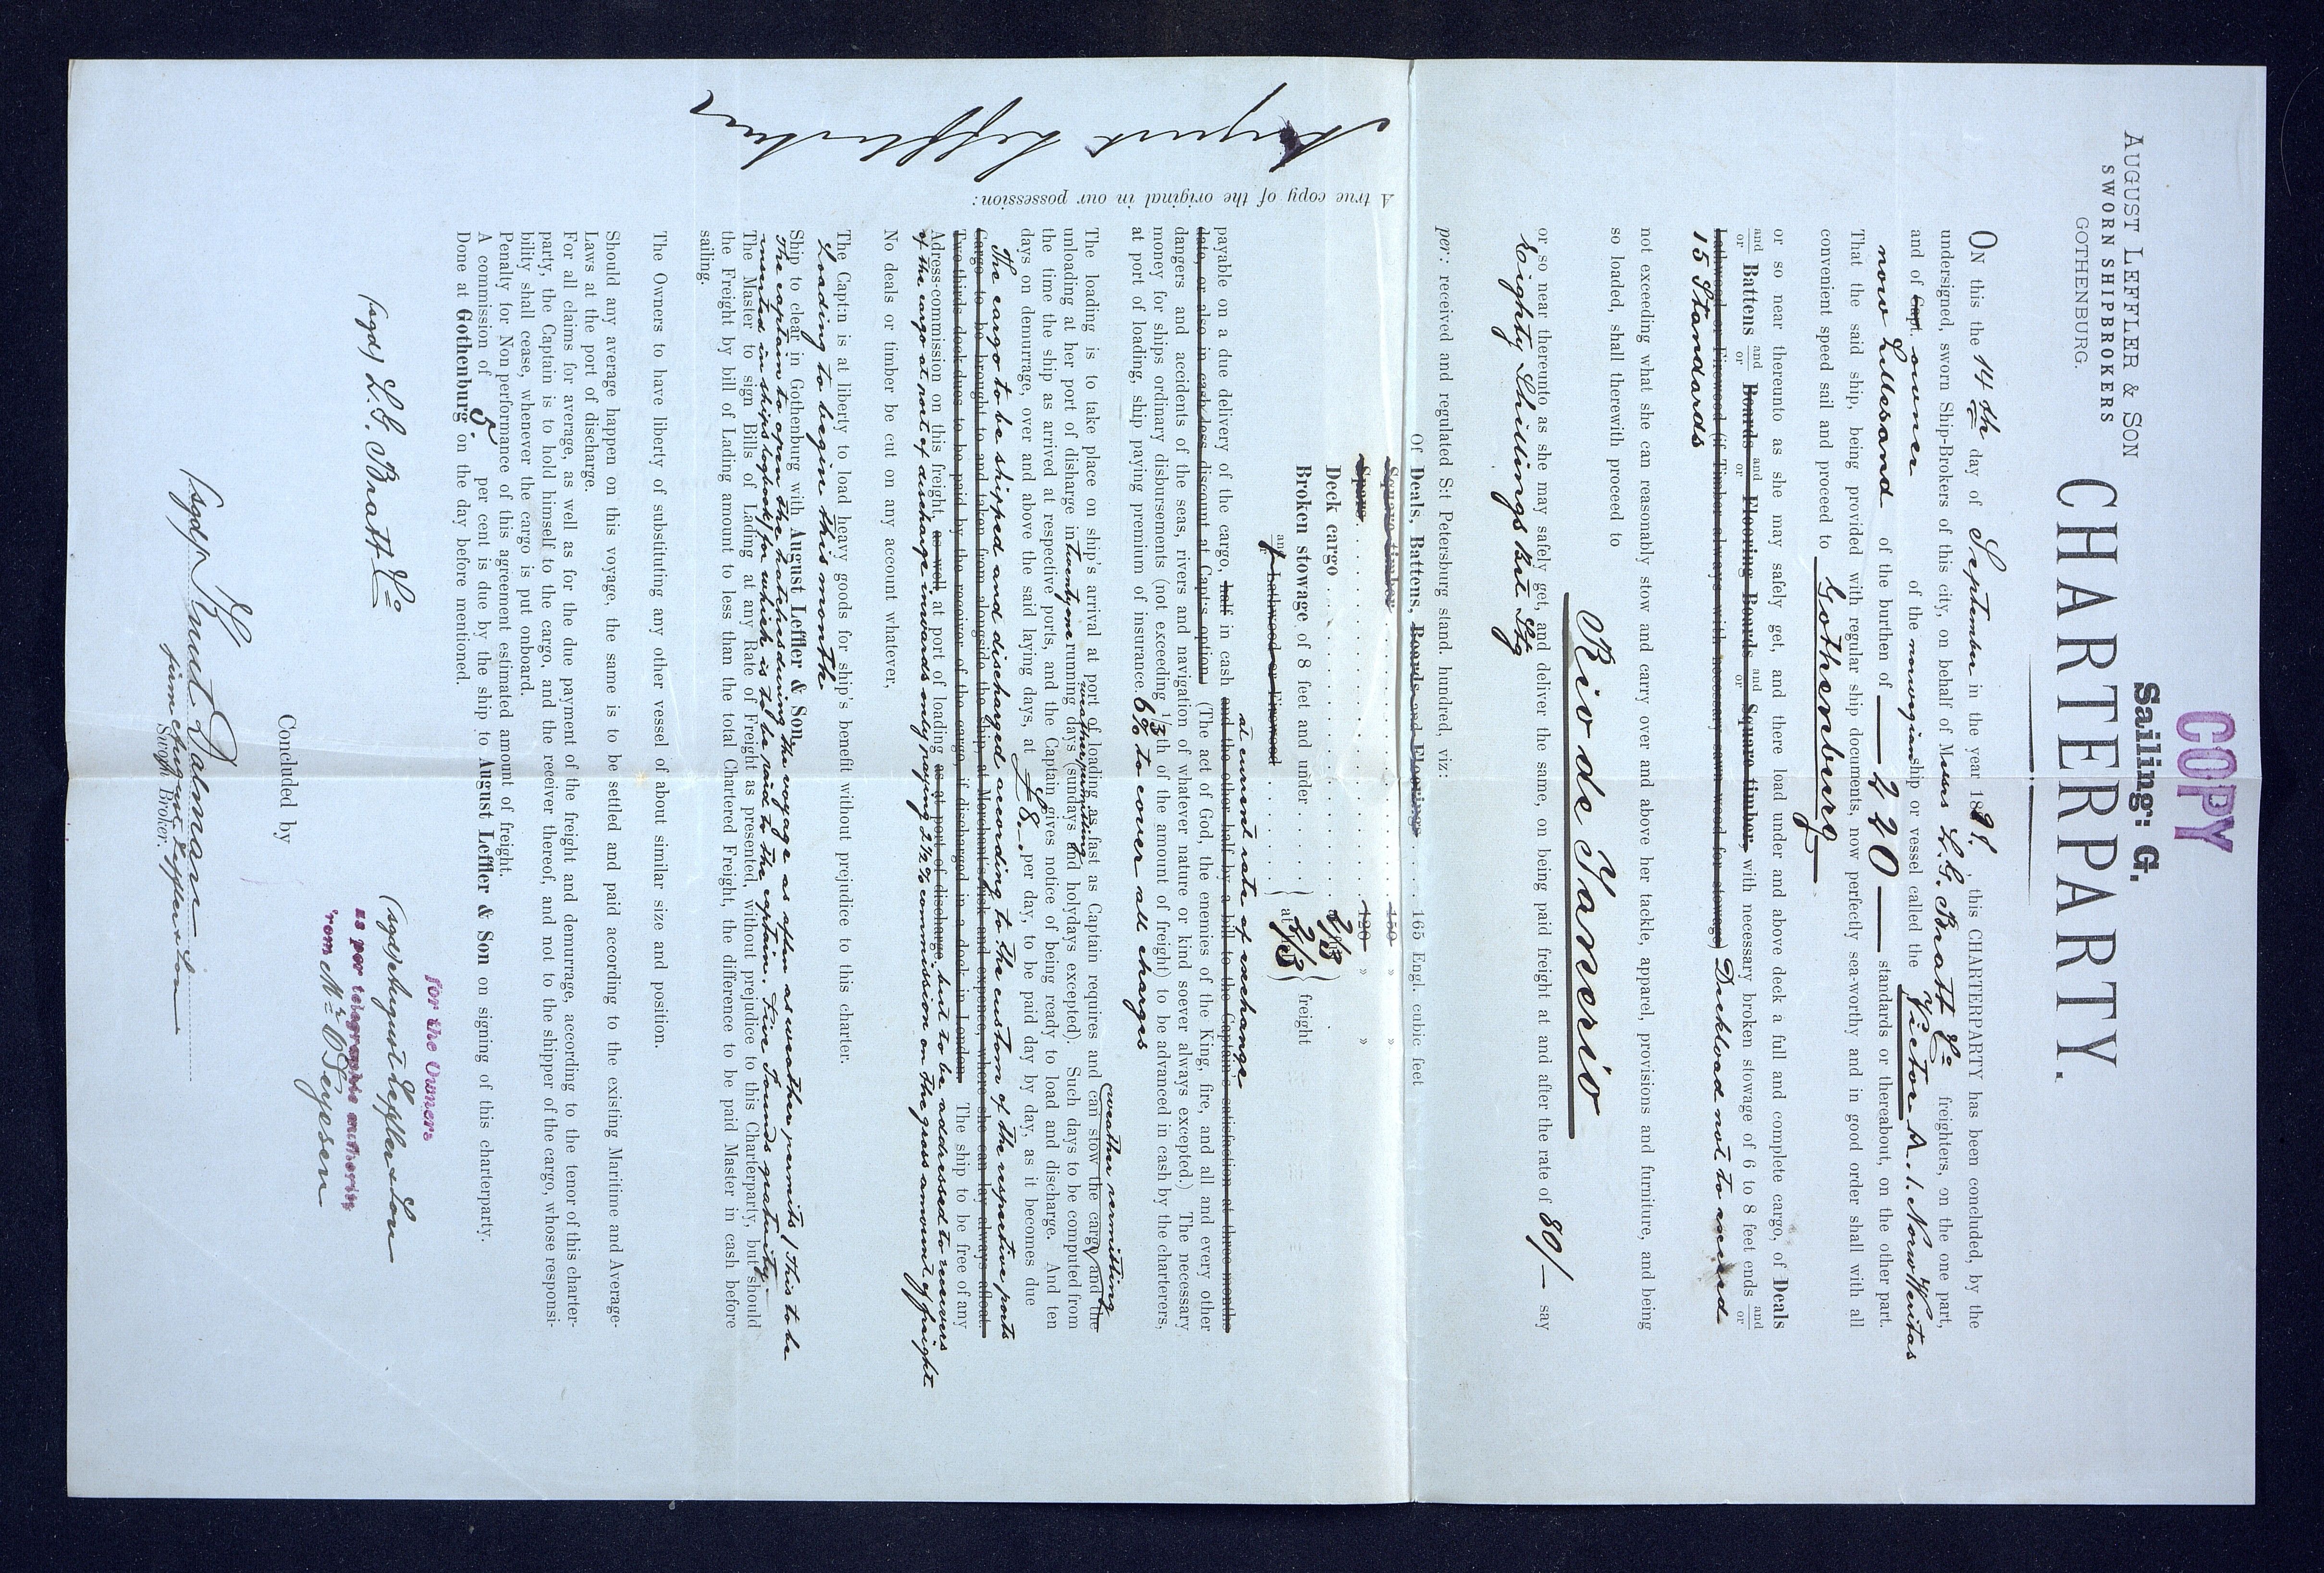 COPY
Sailing: G.
AUGUST LEFFLER & SON
SWORN SHIPBROKERS
GOTHENBURG.
CHARTERPARTY.
ON this the 14th day of September in the year 1898, this CHARTERPARTY has been concluded, by the
undersigned, sworn Ship-Brokers of this city, on behalf of Messrs L. G. Bratt & Co freighters, on the one part,
and of Capt. owner of the norwegian ship or vessel called the "Victor" A. 1. Norw Veritas
now Lillesand of the burthen of — 220 — standards or thereabout, on the other part.
That the said ship, being provided with regular ship documents, now perfectly sea-worthy and in good order shall with all
convenient speed sail and proceed to Gothenburg
or so near thereunto as she may safely get, and there load under and above deck a full and complete cargo, of Deals
and or Battens and or Boards and or Flooring Boards and or Square timber, with necessary broken stowage of 6 to 8 feet ends and or
Lathwood or Firewood (if Timber always with necessary sawn wood for stowage) Deckload not to exceed
15 Standards
not exceeding what she can reasonably stow and carry over and above her tackle, apparel, provisions and furniture, and being
so loaded, shall therewith proceed to
Rio de Janerio
or so near thereunto as she may safely get, and deliver the same, on being paid freight at and after the rate of 80/— say
Eighty Shillings Brit Stg
per: received and regulated S:t Petersburg stand. hundred, viz:
Of Deals, Battens, Boards and Floorings . . . . 165 Engl. cubic feet
Square timber . . . . 150 » »
Spars . . . . 120 » »
Deck cargo . . . . at 2/3
Broken stowage of 8 feet and under . . . . at 2/3 freight
and or Lathwood or Firewood . . . .
at current rate of exchange
payable on a due delivery of the cargo, half in cash and the other half by a bill to the Captain's satisfaction at three months
date, or also in cash less discount at Capt:s option. (The act of God, the enemies of the King, fire, and all and every other
dangers and accidents of the seas, rivers and navigation of whatever nature or kind soever always excepted.) The necessary
money for ships ordinary disbursements (not exceeding 1/3th of the amount of freight) to be advanced in cash by the charterers,
at port of loading, ship paying premium of insurance. 6% to cover all charges
weather permitting
The loading is to take place on ship's arrival at port of loading as fast as Captain requires and can stow the cargo and the
weather permitting
unloading at her port of disharge in twentyone running days (sundays and holydays excepted). Such days to be computed from
the time the ship as arrived at respective ports, and the Captain gives notice of being ready to load and discharge. And ten
days on demurrage, over and above the said laying days, at £ 8.- per day, to be paid day by day, as it becomes due
The cargo to be shipped and discharged according to the custom of the respective ports
Cargo to be brought to and taken from alongside the ship at Merchant's risk and expence, where she can lay always afloat.
Two thirds dock-dues to be paid by the receiver of the cargo, if discharged in a dock in London. The ship to be free of any
Adress-commission on this freight, as well at port of loading as at port of discharge, but to be addressed to receivers
of the cargo at port of discharge inwards only paying 2 1/2 % commission on the gross amount of freight
No deals or timber be cut on any account whatever.
The Capt:n is at liberty to load heavy goods for ship's benefit without prejudice to this charter.
Loading to begin this month
Ship to clear in Gothenburg with August Leffler & Son.
The captain to open the hatches during the voyage as often as weather permits / This to be
inserted in ships logbook / for which is to be paid to the captain. Five Pounds gratuity.
The Master to sign Bills of Lading at any Rate of Freight as presented, without prejudice to this Charterparty, but should
the Freight by bill of Lading amount to less than the total Chartered Freight, the difference to be paid Master in cash before
sailing.
The Owners to have liberty of substituting any other vessel of about similar size and position.
Should any average happen on this voyage, the same is to be settled and paid according to the existing Maritime and Average-
Laws at the port of discharge.
For all claims for average, as well as for the due payment of the freight and demurrage, according to the tenor of this charter-
party, the Captain is to hold himself to the cargo, and the receiver thereof, and not to the shipper of the cargo, whose responsi-
bility shall cease, whenever the cargo is put onboard.
Penalty for Non performance of this agreement estimated amount of freight.
A commission of 5. per cent is due by the ship to August Leffler & Son on signing of this charterparty.
Done at Gothenburg on the day before mentioned.
for the Owners
(sgd) L. G. Bratt & Co
(sgd) August Leffler & Son
as per telegraphic authority
from Mr O. T. Fegesen
Concluded by
(sgd) Knut Dalman
Sworn Broker.
A true copy of the original in our possession:
August Leffler & Son